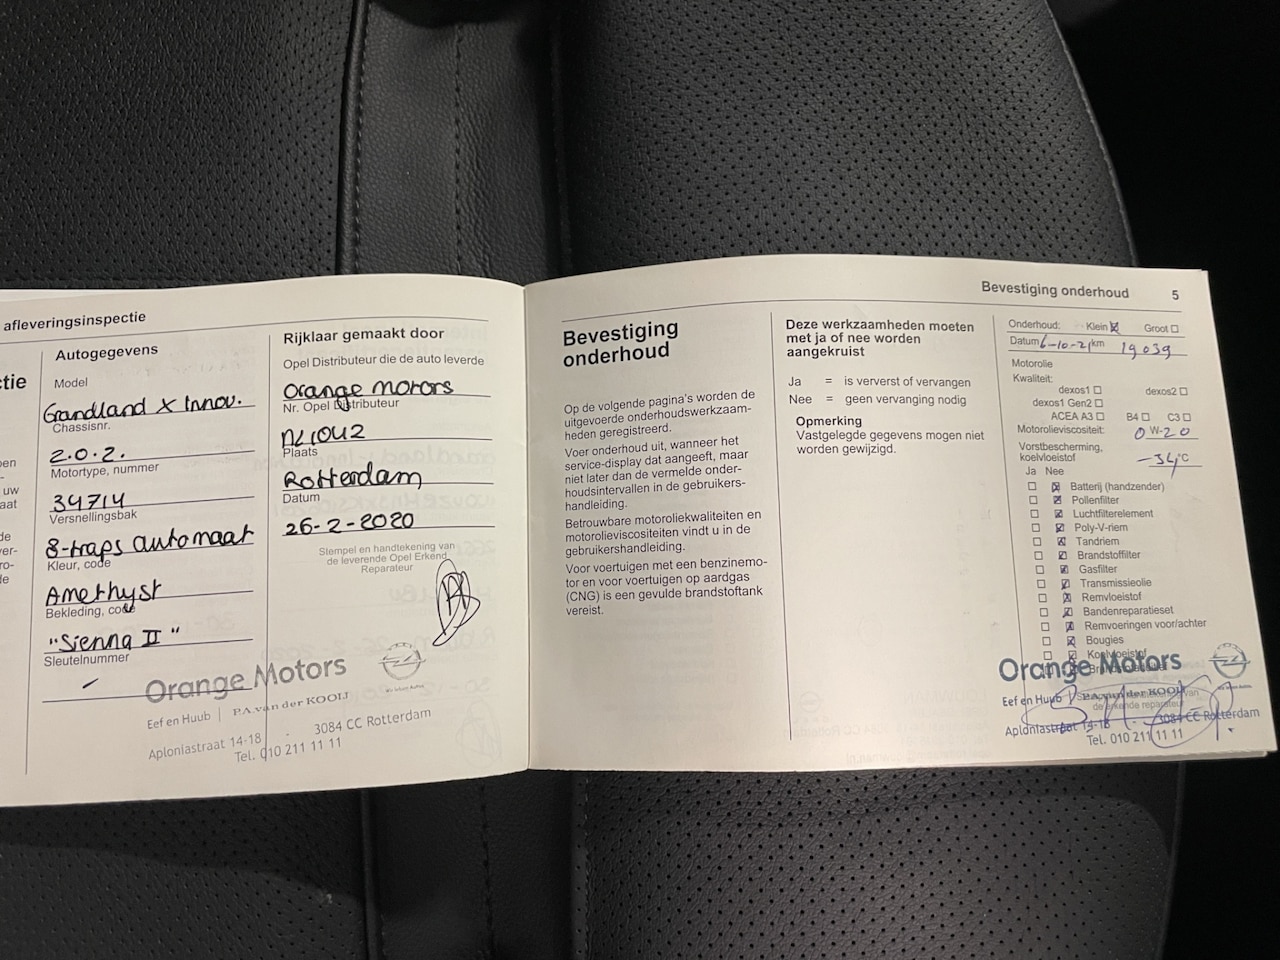 afleveringsinspectie
ctie
en
uw
aat
de
ver-
ro-
de
Autogegevens
Model
Grandland X Innov.
Chassisnr.
2.0.2.
Motortype, nummer
34714
Versnellingsbak
8-traps automaat
Kleur, code
Amethyst
Bekleding, code
"Sienna II"
Sleutelnummer
Rijklaar gemaakt door
Opel Distributeur die de auto leverde
Orange motors
Nr. Opel Distributeur
Plaats
Rotterdam
Datum
26-2-2020
Stempel en handtekening van
de leverende Opel Erkend
Reparateur
Orange Motors
Eef en Huub | P.A.van der KOOIJ
Aploniastraat 14-18 . 3084 CC Rotterdam
Tel. 010 211 11 11
Bevestiging onderhoud 5
Bevestiging
onderhoud
Op de volgende pagina's worden de
uitgevoerde onderhoudswerkzaam-
heden geregistreerd.
Voer onderhoud uit, wanneer het
service-display dat aangeeft, maar
niet later dan de vermelde onder-
houdsintervallen in de gebruikers-
handleiding.
Betrouwbare motoroliekwaliteiten en
motorolieviscositeiten vindt u in de
gebruikershandleiding.
Voor voertuigen met een benzinemo-
tor en voor voertuigen op aardgas
(CNG) is een gevulde brandstoftank
vereist.
Deze werkzaamheden moeten
met ja of nee worden
aangekruist
Ja = is ververst of vervangen
Nee = geen vervanging nodig
Opmerking
Vastgelegde gegevens mogen niet
worden gewijzigd.
Onderhoud: Klein Groot
Datum 6-10-21 km 19039
Motorolie
Kwaliteit:
dexos1 dexos2
dexos1 Gen2
ACEA A3 B4 C3
Motorolieviscositeit: 0 W-20
Vorstbescherming,
koelvloeistof -34 °C
Ja Nee
Batterij (handzender)
Pollenfilter
Luchtfilterelement
Poly-V-riem
Tandriem
Brandstoffilter
Gasfilter
Transmissieolie
Remvloeistof
Bandenreparatieset
Remvoeringen voor/achter
Bougies
Koelvloeistof
Orange Motors
Eef en Huub | P.A.van der KOOIJ
de erkende reparateur
Aploniastraat 14-18 . 3084 CC Rotterdam
Tel. 010 211 11 11